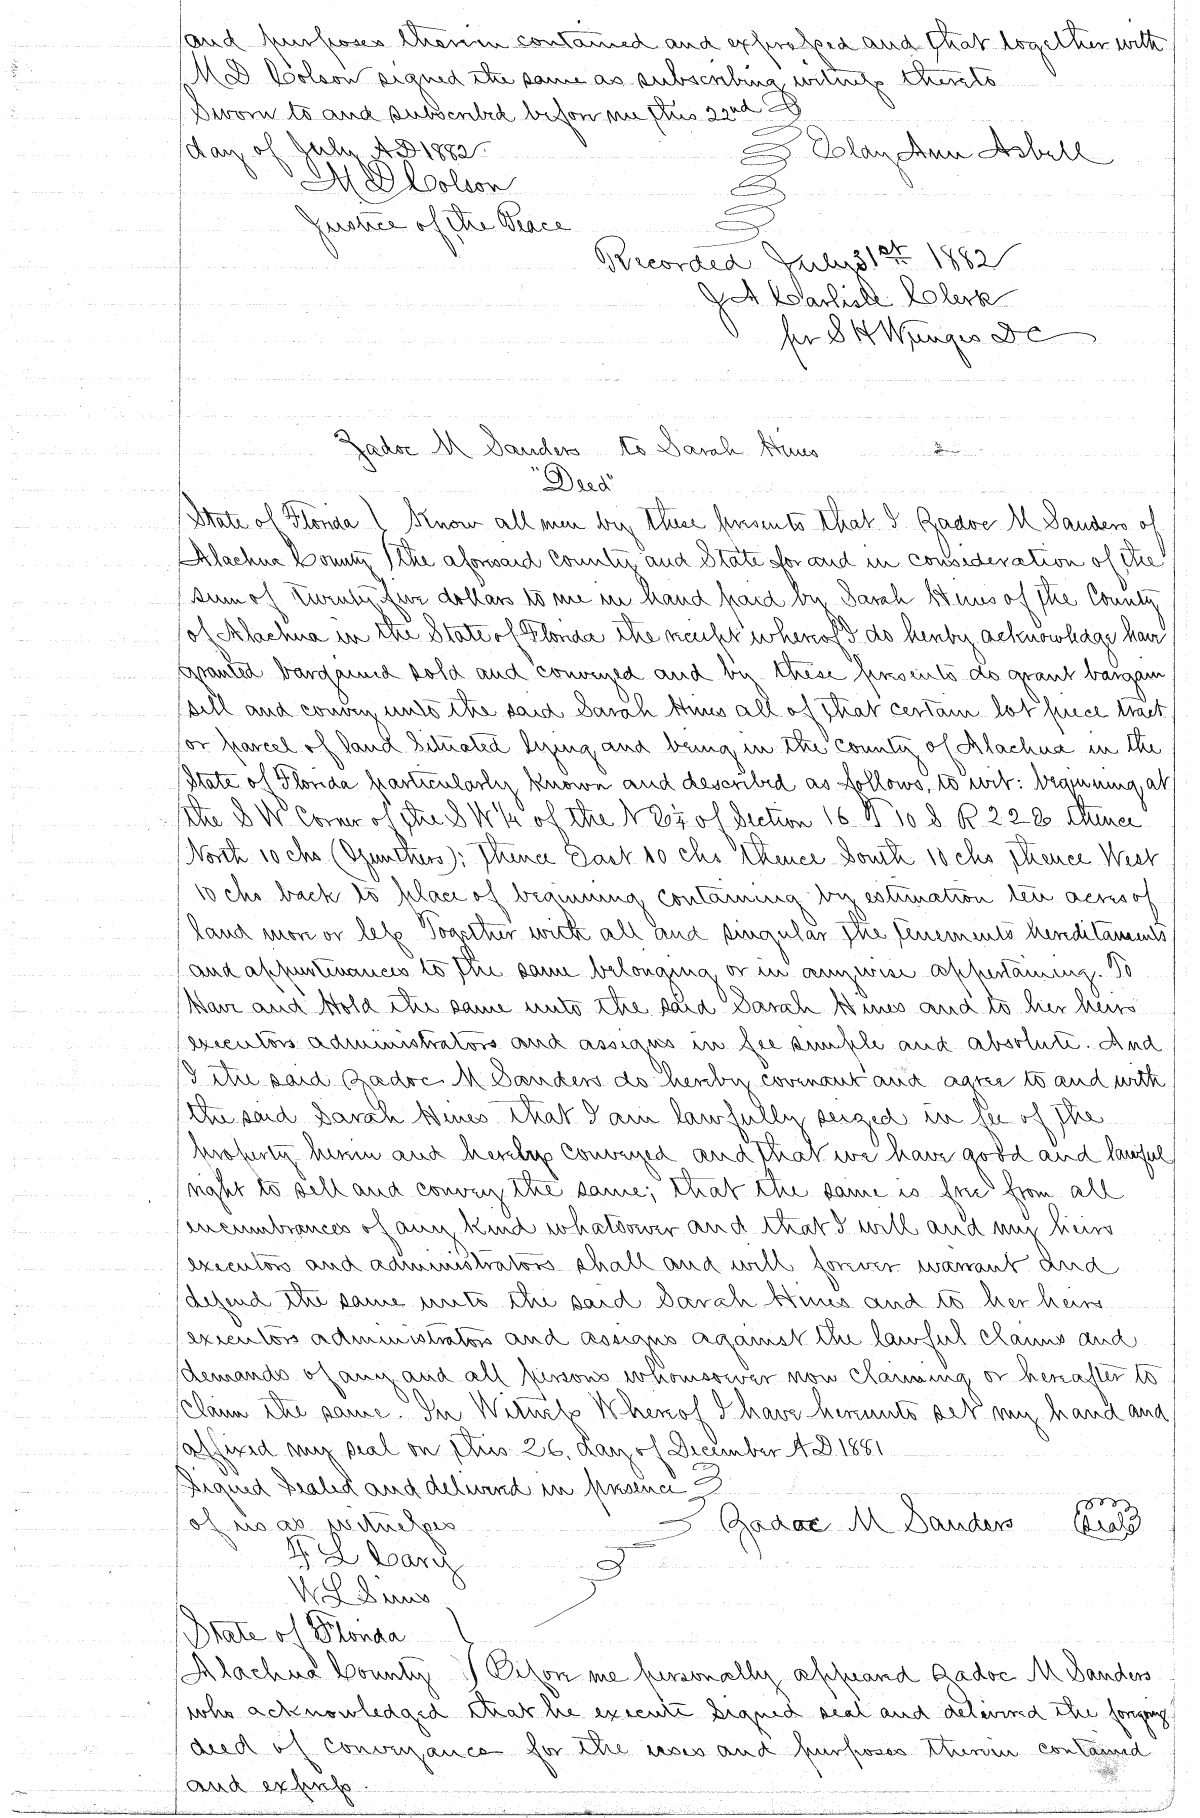 and purposes therein contained and expressed and that together with
M D Colson signed the same as subscribing witness thereto
Sworn to and subscribed before me this 22nd
day of July A D 1882
Clay Ann Asbell
M D Colson
Justice of the Peace
Recorded July 31st 1882
J A Carlisle Clerk
per S H Wienges D C
Zadoc M Sanders to Sarah Hines
"Deed"
State of Florida } Know all men by these presents that I Zadoc M Sanders of
Alachua County } the aforesaid County and State for and in consideration of the
sum of twenty five dollars to me in hand paid by Sarah Hines of the County
of Alachua in the State of Florida the receipt whereof I do hereby acknowledge have
granted bargained sold and conveyed and by these presents do grant bargain
sell and convey unto the said Sarah Hines all of that certain lot piece tract
or parcel of land Situated lying and being in the county of Alachua in the
State of Florida particularly known and described as follows, to wit: beginning at
the S W Corner of the S W 1/4 of the N E 1/4 of Section 16 T 10 S R 22 E thence
North 10 chs (Gunthers); thence East 10 chs thence South 10 chs thence West
10 chs back to place of beginning containing by estimation ten acres of
land more or less Together with all and singular the tenements hereditaments
and appurtenances to the same belonging or in anywise appertaining. To
Have and Hold the same unto the said Sarah Hines and to her heirs
executors administrators and assigns in fee simple and absolute. And
I the said Zadoc M Sanders do hereby covenant and agree to and with
the said Sarah Hines that I am lawfully seized in fee of the
property herein and hereby conveyed and that we have good and lawful
right to sell and convey the same; that the same is free from all
encumbrances of any kind whatsoever and that I will and my heirs
executors and administrators shall and will forever warrant and
defend the same unto the said Sarah Hines and to her heirs
executors administrators and assigns against the lawful claims and
demands of any and all persons whomsoever now claiming or hereafter to
claim the same. In Witness Whereof I have hereunto set my hand and
affixed my seal on this 26. day of December A D 1881
Signed Sealed and delivered in presence
of us as witnesses
Zadoc M Sanders Seal
F L Cary
W L Sims
State of Florida
Alachua County } Before me personally appeard Zadoc M Sanders
who acknowledged that he execute Signed seal and delivered the foregoing
deed of conveyance for the uses and purposes therein contained
and express.